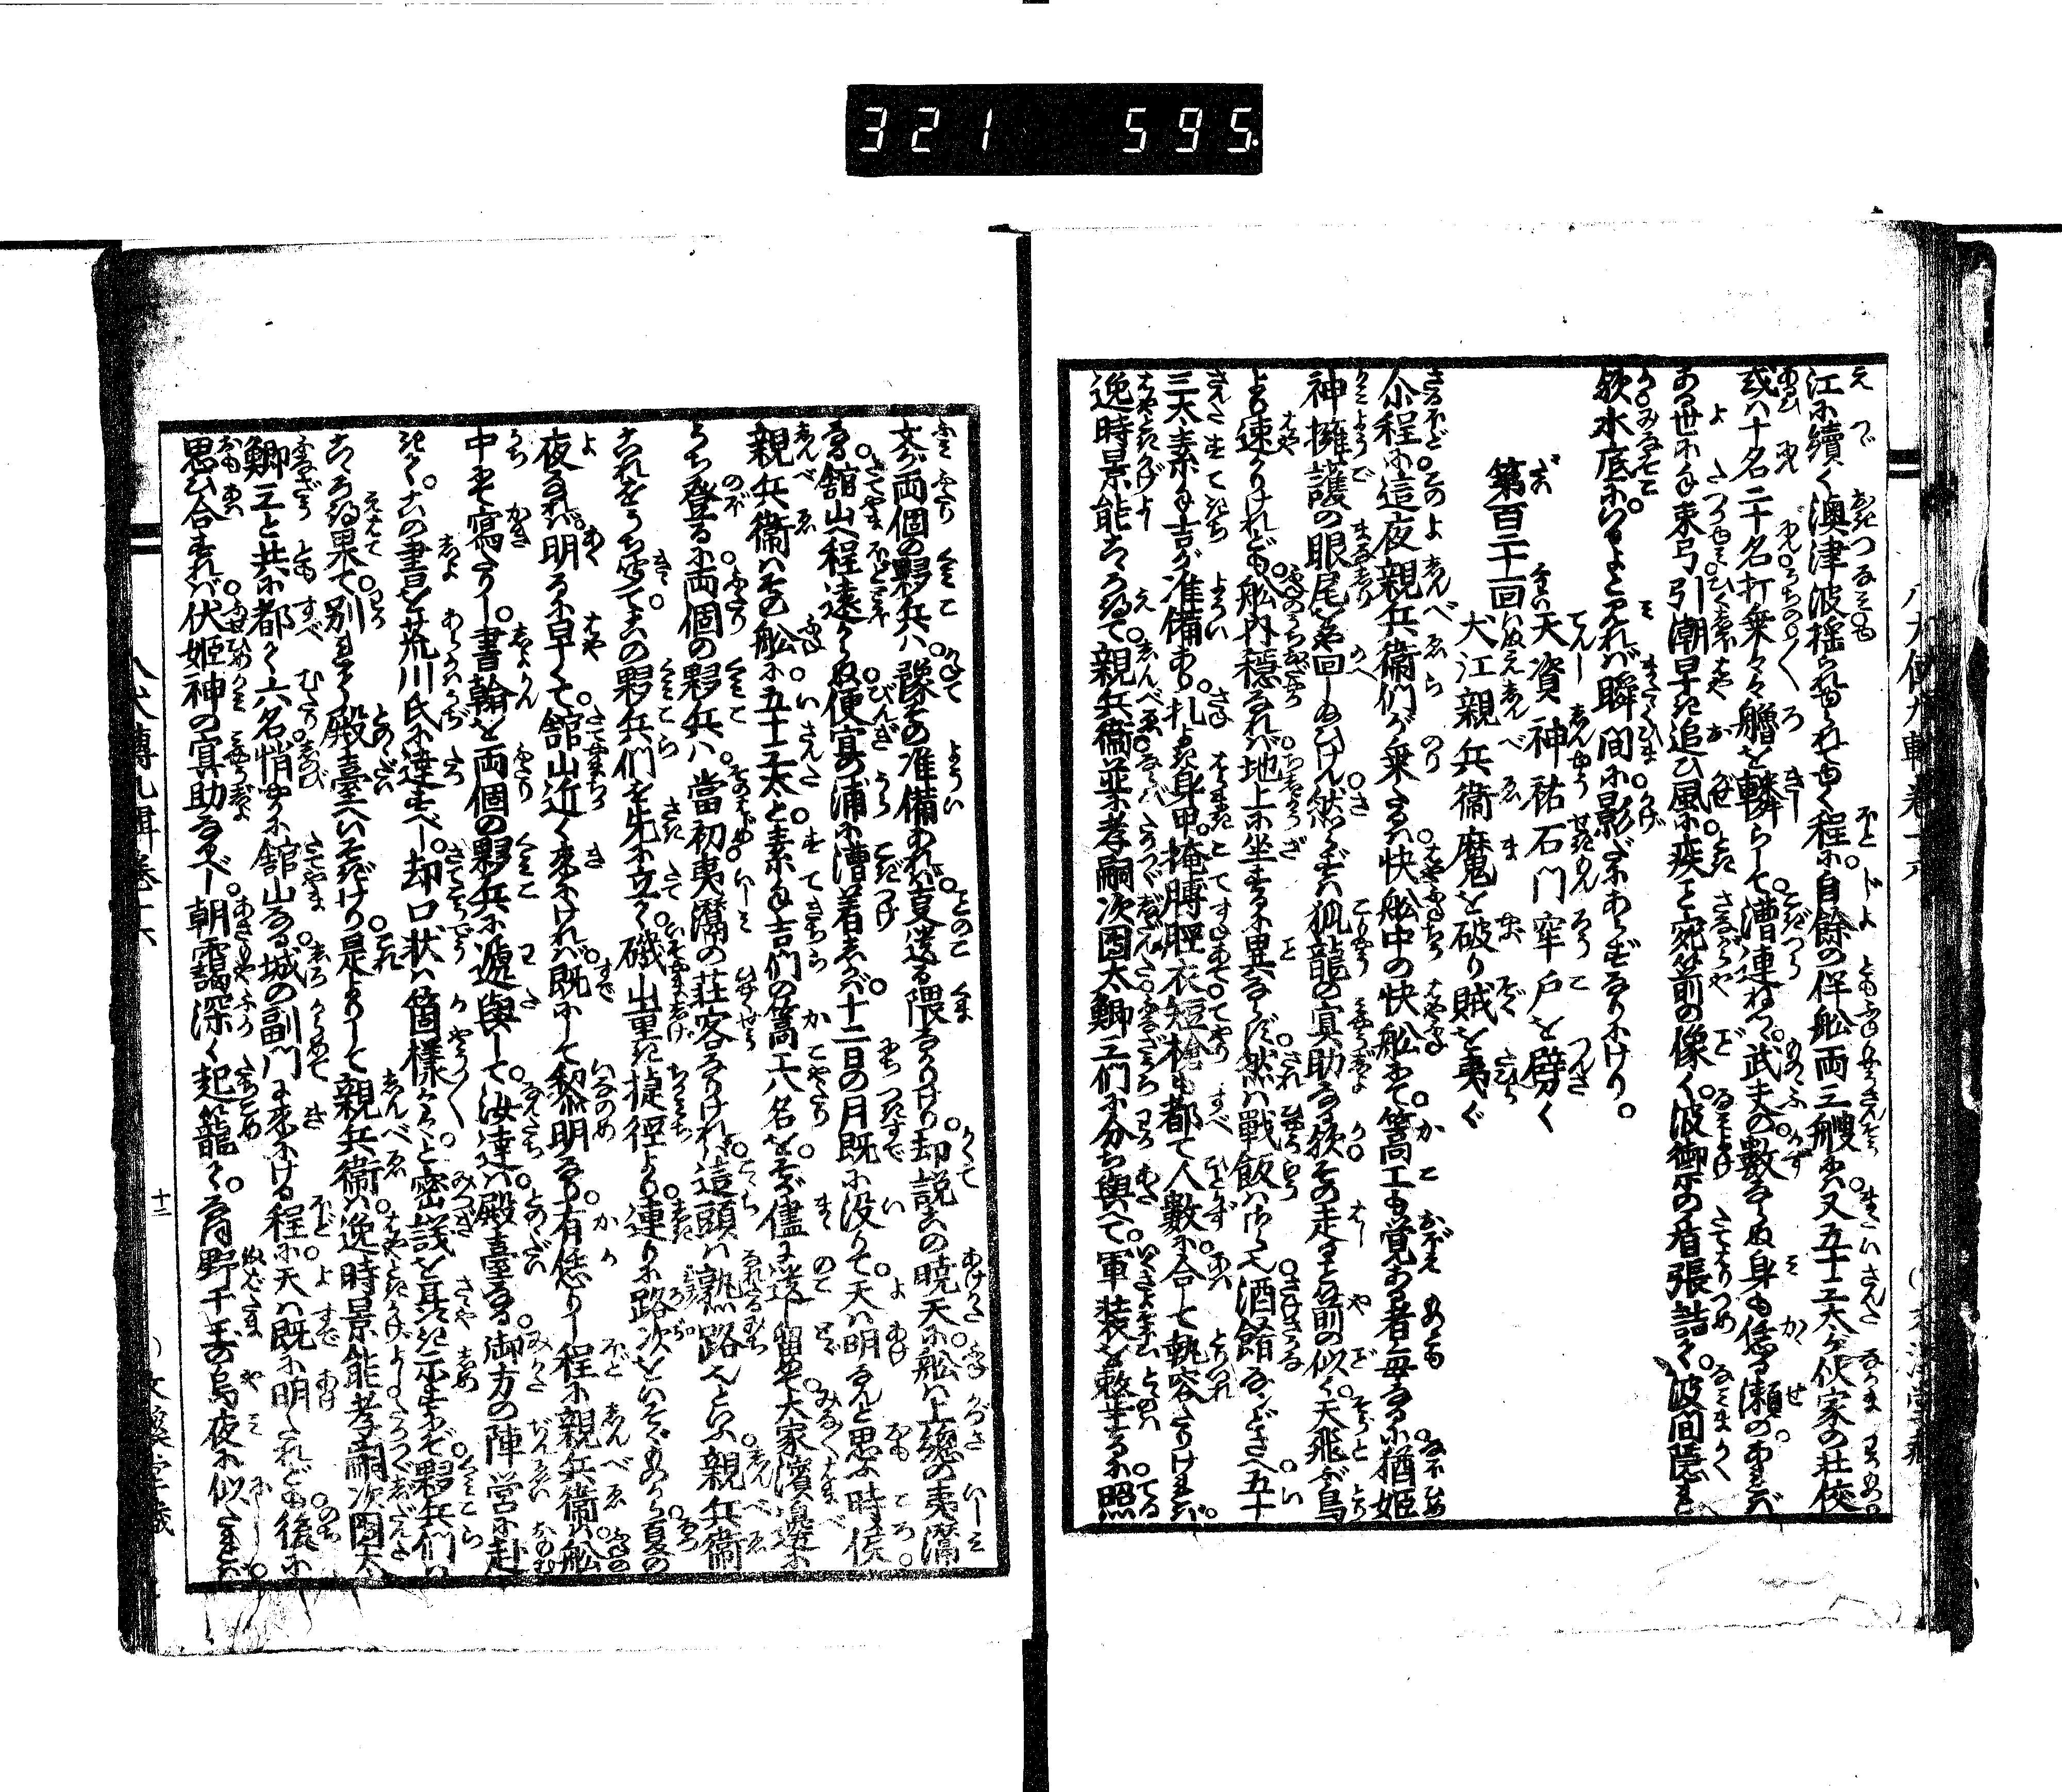 321 595
江に續く澳津波揺られゆられゆく程に自餘の伴舩両三艘出又五十三太が伙家の壮佼
或ハ十名二十名打乗々々艪を轔らして漕連ねつ武夫の數ならぬ身も恁る瀬のあれバ
ある世にも束弓引潮早き追ひ風に疾こと宛箭の像く波御のの盾張詰く波間隱き
欤水底に沒るよと見れバ瞬間に影だにあらずなりにけり
第百二十一回
天資神祐石門窂戸を劈く
犬江親兵衛魔を破り賊を夷ぐ
尓程に這夜親兵衛們が乗る快舩中の快舩にて篙工も覚ある者毎なるに猶姫
神擁護の眼尾をや回しぬひけん然らずハ狐龍の冥助なる欤その走ること箭の似く天飛ぶ鳥
より速かりけれども舩内穩なれバ地上に坐するに異ならず然バ戰飯ハさら也酒餚なンどさへ五十
三太素手吉が准備あり扎よき身甲掩膊脛衣短槍も都て人數に合して執容たりけれバ
逸時景能こゝろ得て親兵衛並に孝嗣次團太鯽三們に分ち與へて軍装を整するに照
文が両個の夥兵ハ豫その准備あれバ更送る隈なかりけり却説この暁天に舩ハ上總の夷灊
なる舘山へ程遠からぬ便宜の浦に漕着しが十二日の月既に没りて天ハ明なんと思ふ時候
親兵衛ハその舩に五十三太と素手吉們の篙工八名をその儘に送し留めて大家濱邊に
うち登るに両個の夥兵ハ當初夷灊の荘客なりけれバ這頭ハ熟路也といふ親兵衛
これをうち听てこの夥兵們を先に立て磯山重き捷徑より連りに路次をいそぐものから夏の
夜なれバ明るに早くて舘山近く来にけれバ既にして黎明なり有恁りし程に親兵衛ハ舩
中にて寫たりし書翰を両個の夥兵に遞與して汝達ハ殿臺なる御方の陣営に赴
きてこの書を荒川氏に達すべし却口状ハ箇様々々と密議を耳語き示せバ夥兵們ハ
こゝろ得果て別れて殿臺へいそぎけり是よりして親兵衛ハ逸時景能孝嗣次團太
鯽三と共に都て六名悄やかに舘山なる城の副門に来にける程に天ハ既に明たれども後に
思ひ合すれバ伏姫神の冥助なるべし朝靄深く起籠て宛野干玉の烏夜に似たれバ
八犬傳九輯巻十六
十二